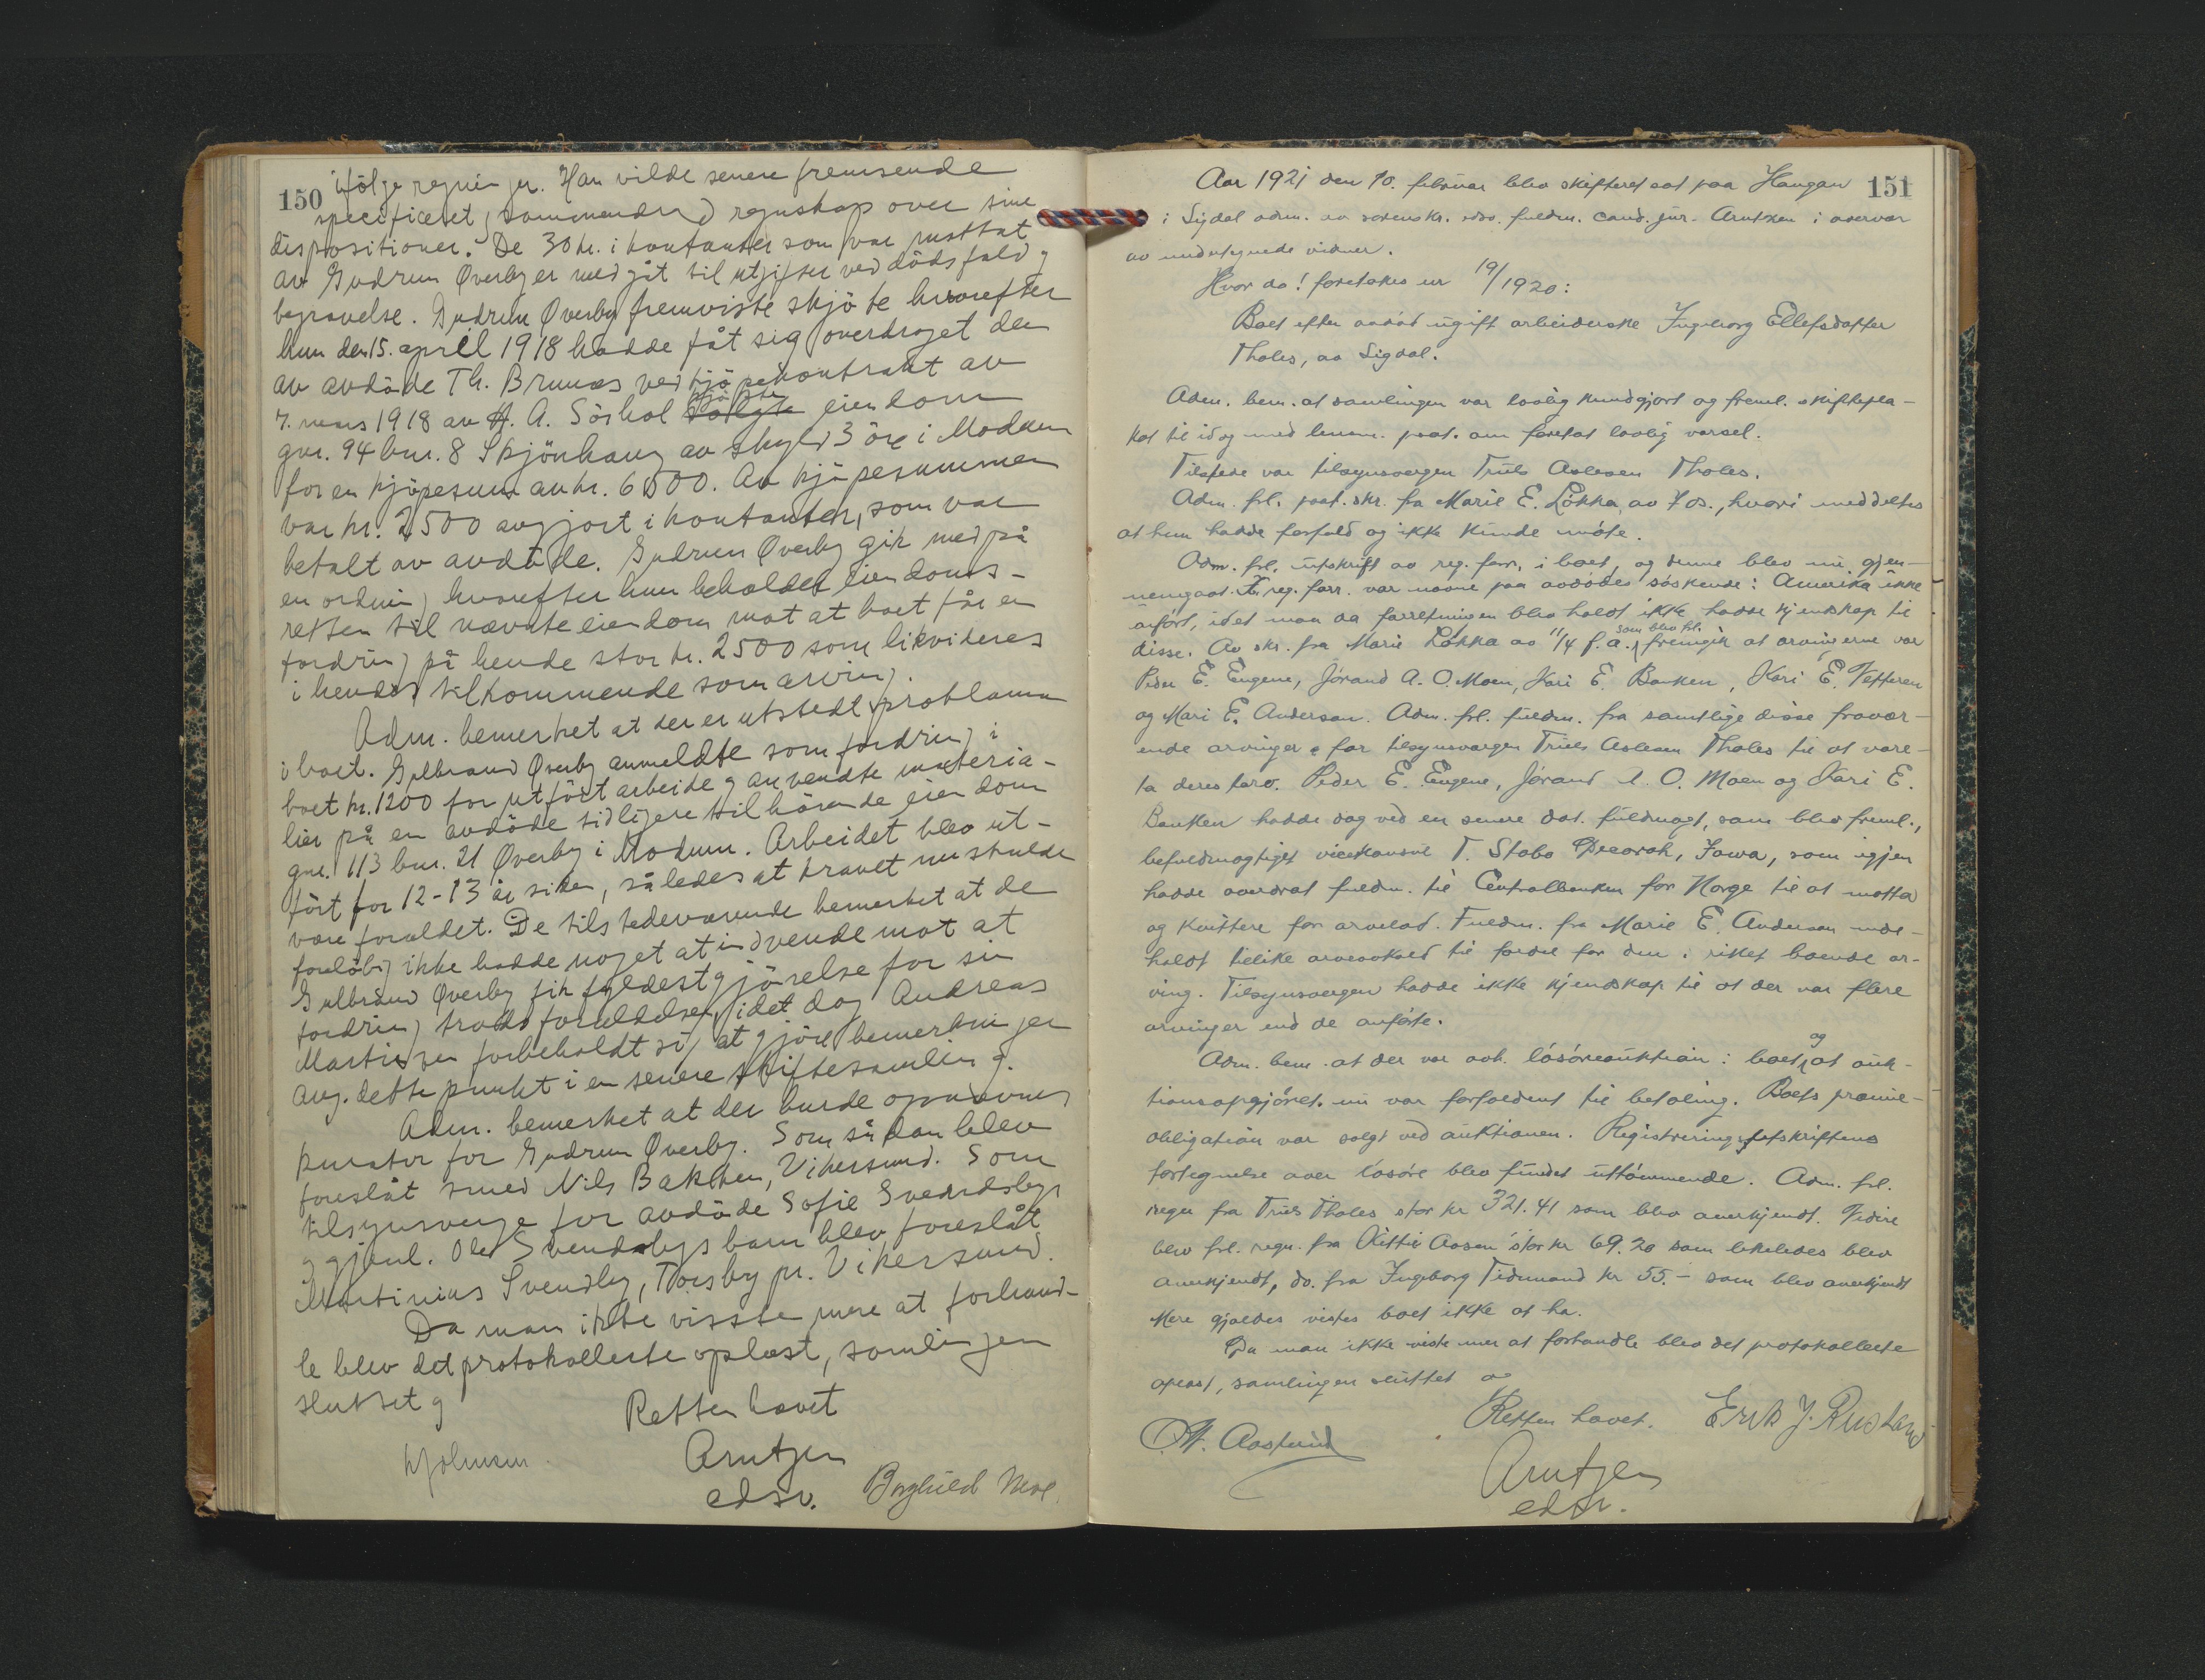 150
ifölge regninger. Han vilde senere fremsende
specificeret, sammendrad regnskap over sine
dispositioner. De 30 kr. i kontanter som var mottat
av Gudrun Øverby er medgåt til utgifter ved dödsfald g
begravelse. Gudrun Øverby fremviste skjöte hvorefter
hun den 15. april 1918 hadde fåt sig overdraget den
av avdöde Th. Brunæs ved kjöpekontrakt av
7. mars 1918 av A. A. Sörhol solgte kjöpte eiendom
gnr. 94 bnr. 8 Skjönhaug av skyld 3 öre i Modum
for en kjöpesum av kr. 6500. Av kjöpesummen
var kr. 2500 avgjort i kontanter, som var
betalt av avdöde. Gudrun Øverby gik med på
en ordning hvorefter hun beholder eiendoms-
retten til nævnte eiendom mot at boet får en
fordring på hende stor kr. 2500 som likvideres
i hendes tilkommende som arving.
Adm. bemerket at der er utstedt proklama
i boet. Gulbrand Øverby anmeldte som fordring i
boet kr. 1200 for utfört arbeide g anvendte materia-
lier på en avdöde tidligere tilhörende eiendom
gnr. 113 bnr. 21 Øverby i Modum. Arbeidet blev ut-
fört for 12-13 år siden, således at kravet nu skulde
være foreldet. De tilstedeværende bemerket at de
foreløbig ikke hadde noget at indvende mot at
Gulbrand Øverby fik fyldestgjörelse for sin
fordring trods foreldelsen, idet dog Andreas
Martinsen forbeholdt sig at gjöre bemerkninger
ang. dette punkt i en senere skiftesamling.
Adm. bemerket at der burde opnævnes
kurator for Gudrun Øverby. Som sådan blev
foreslåt smed Nils Bakken, Vikersund. Som
tilsynsverge for avdöde Sofie Svendsbys
g gjenl. Ole Svendsbys barn blev foreslåt
Martinius Svendby, Thorsby pr. Vikersund.
Da man ikke visste mere at forhand-
le blev det protokollerte oplæst, samlingen
sluttet g
Retten hævet
Arntzen
edsv.
Borghild Moe
151
Aar 1921 den 10. februar blev skifteret sat paa Haugan
i Sigdal adm. av sorenskr. edsv. fuldm. cand. jur. Arntzen i overvær
av undertegnede vidner.
Hvor da! foretokes nr 19/1920:
Boet efter avdød ugift arbeiderske Ingeborg Ellefsdatter
Tholes, av Sigdal.
Adm. bem. at samlingen var lovlig kundgjort og freml. skiftepla-
kat til idag med lensm. paat. om foretat lovlig varsel.
Tilstede var tilsynsvergen Truls Aslesen Tholes.
Adm. frl. paat. skr. fra Marie E. Løkka av 7 ds., hvori meddeltes
at hun hadde forfald og ikke kunde møte.
Adm. frl. utskrift av reg. forr. i boet, og denne blev nu gjen-
nemgaat. I reg. forr. var navne paa avdødes søskende i Amerika ikke
anført, idet man da forretningen blev holdt ikke hadde kjendskap til
disse. Av skr. fra Marie Løkka av 11/4 f. a. som blev frl. fremgik at arvingerne var
Peder E. Eugene, Jørand A. O. Moen, Kari E. Banken, Kari E. Tefteren
og Mari E. Anderson. Adm. frl. fuldm. fra samtlige disse fravær-
ende arvinger for tilsynsvergen Truls Aslesen Tholes til at vare-
ta deres tarv. Peder E. Eugene, Jørand A. O. Moen og Kari E.
Banken hadde dog ved en senere dat. fuldmagt, som blev freml.,
befuldmægtiget vicekonsul T. Stabo Decorah, Iowa, som igjen
hadde overdrat fuldm. til Centralbanken for Norge til at motta
og kvittere for arvelod. Fuldm. fra Marie E. Anderson inde-
holdt tillike arveavkald til fordel for den i riket boende ar-
ving. Tilsynsvergen hadde ikke kjendskap til at der var flere
arvinger end de anførte.
Adm. bem. at der var avh. løsøreauktion i boet og at auk-
tionsopgjøret nu var forfaldent til betaling. Boets præmie-
obligation var solgt ved auktionen. Registreringsutskriftens
fortegnelse over løsøre blev fundet uttømmende. Adm. frl.
regn fra Truls Tholes stor kr 321.41 som blev anerkjendt. Videre
blev frl. regn. fra Kittil Aasen stor kr 69.20 som likeledes blev
anerkjendt, do. fra Ingeborg Tidemand kr 55.- som blev anerkjendt
Mere gjæld vistes boet ikke at ha.
Da man ikke viste mer at forhandle blev det protokollerte
oplæst, samlingen sluttet og
Retten hævet.
Erik J. Rustand
A. Aaslund
Arntzen
edsv.